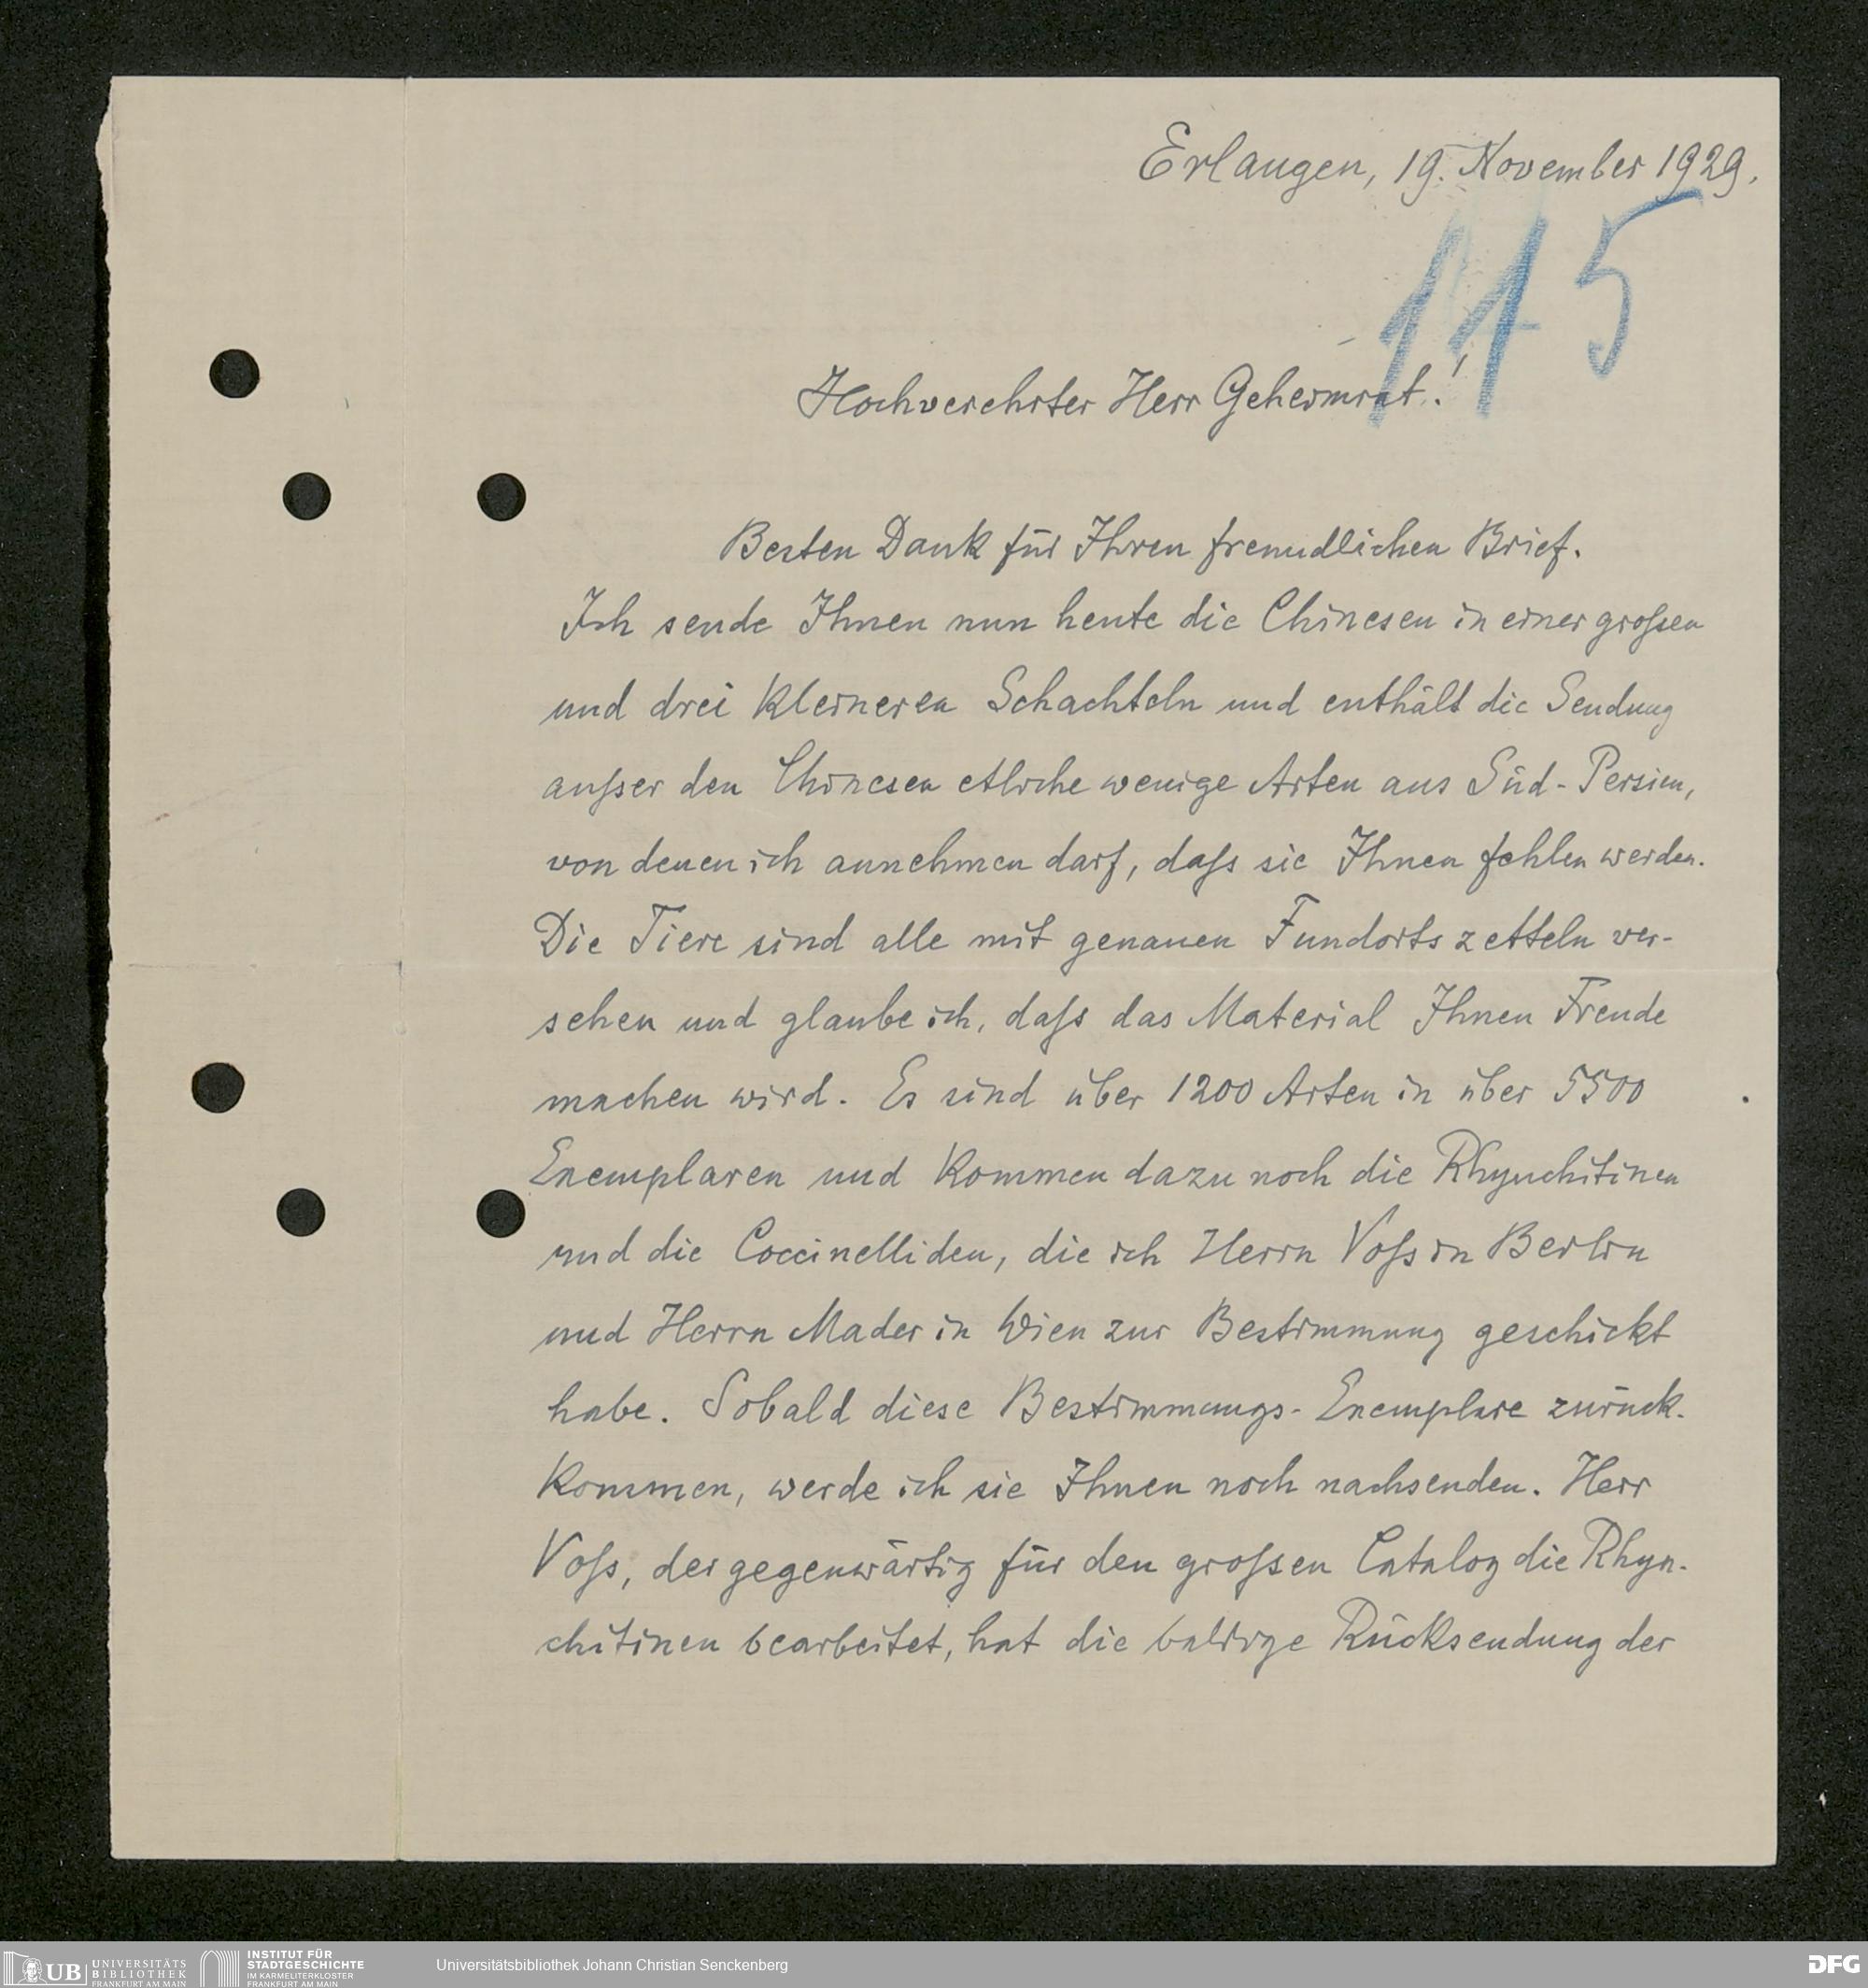 Erlangen, 19. November 1929.
115
Hochverehrter Herr Geheimrat!
Besten Dank für Ihren freundlichen Brief.
Ich sende Ihnen nun heute die Chinesen in einer großen
und drei kleineren Schachteln und enthält die Sendung
außer den Chinesen etliche wenige Arten aus Süd-Persien,
von denen ich annehmen darf, daß sie Ihnen fehlen werden.
Die Tiere sind alle mit genauen Fundortszetteln ver-
sehen und glaube ich, daß das Material Ihnen Freude
machen wird. Es sind über 1200 Arten in über 5500
Exemplaren und kommen dazu noch die Rhynchitinen
und die Coccinelliden, die ich Herrn Voß in Berlin
und Herrn Mader in Wien zur Bestimmung geschickt
habe. Sobald diese Bestimmungs-Exemplare zurück-
kommen, werde ich sie Ihnen noch nachsenden. Herr
Voß, der gegenwärtig für den großen Catalog die Rhyn-
chitinen bearbeitet, hat die baldige Rücksendung der
UB
UNIVERSITÄTS
BIBLIOTHEK
FRANKFURT AM MAIN
INSTITUT FÜR
STADTGESCHICHTE
IM KARMELITERKLOSTER
FRANKFURT AM MAIN
Universitätsbibliothek Johann Christian Senckenberg
DFG